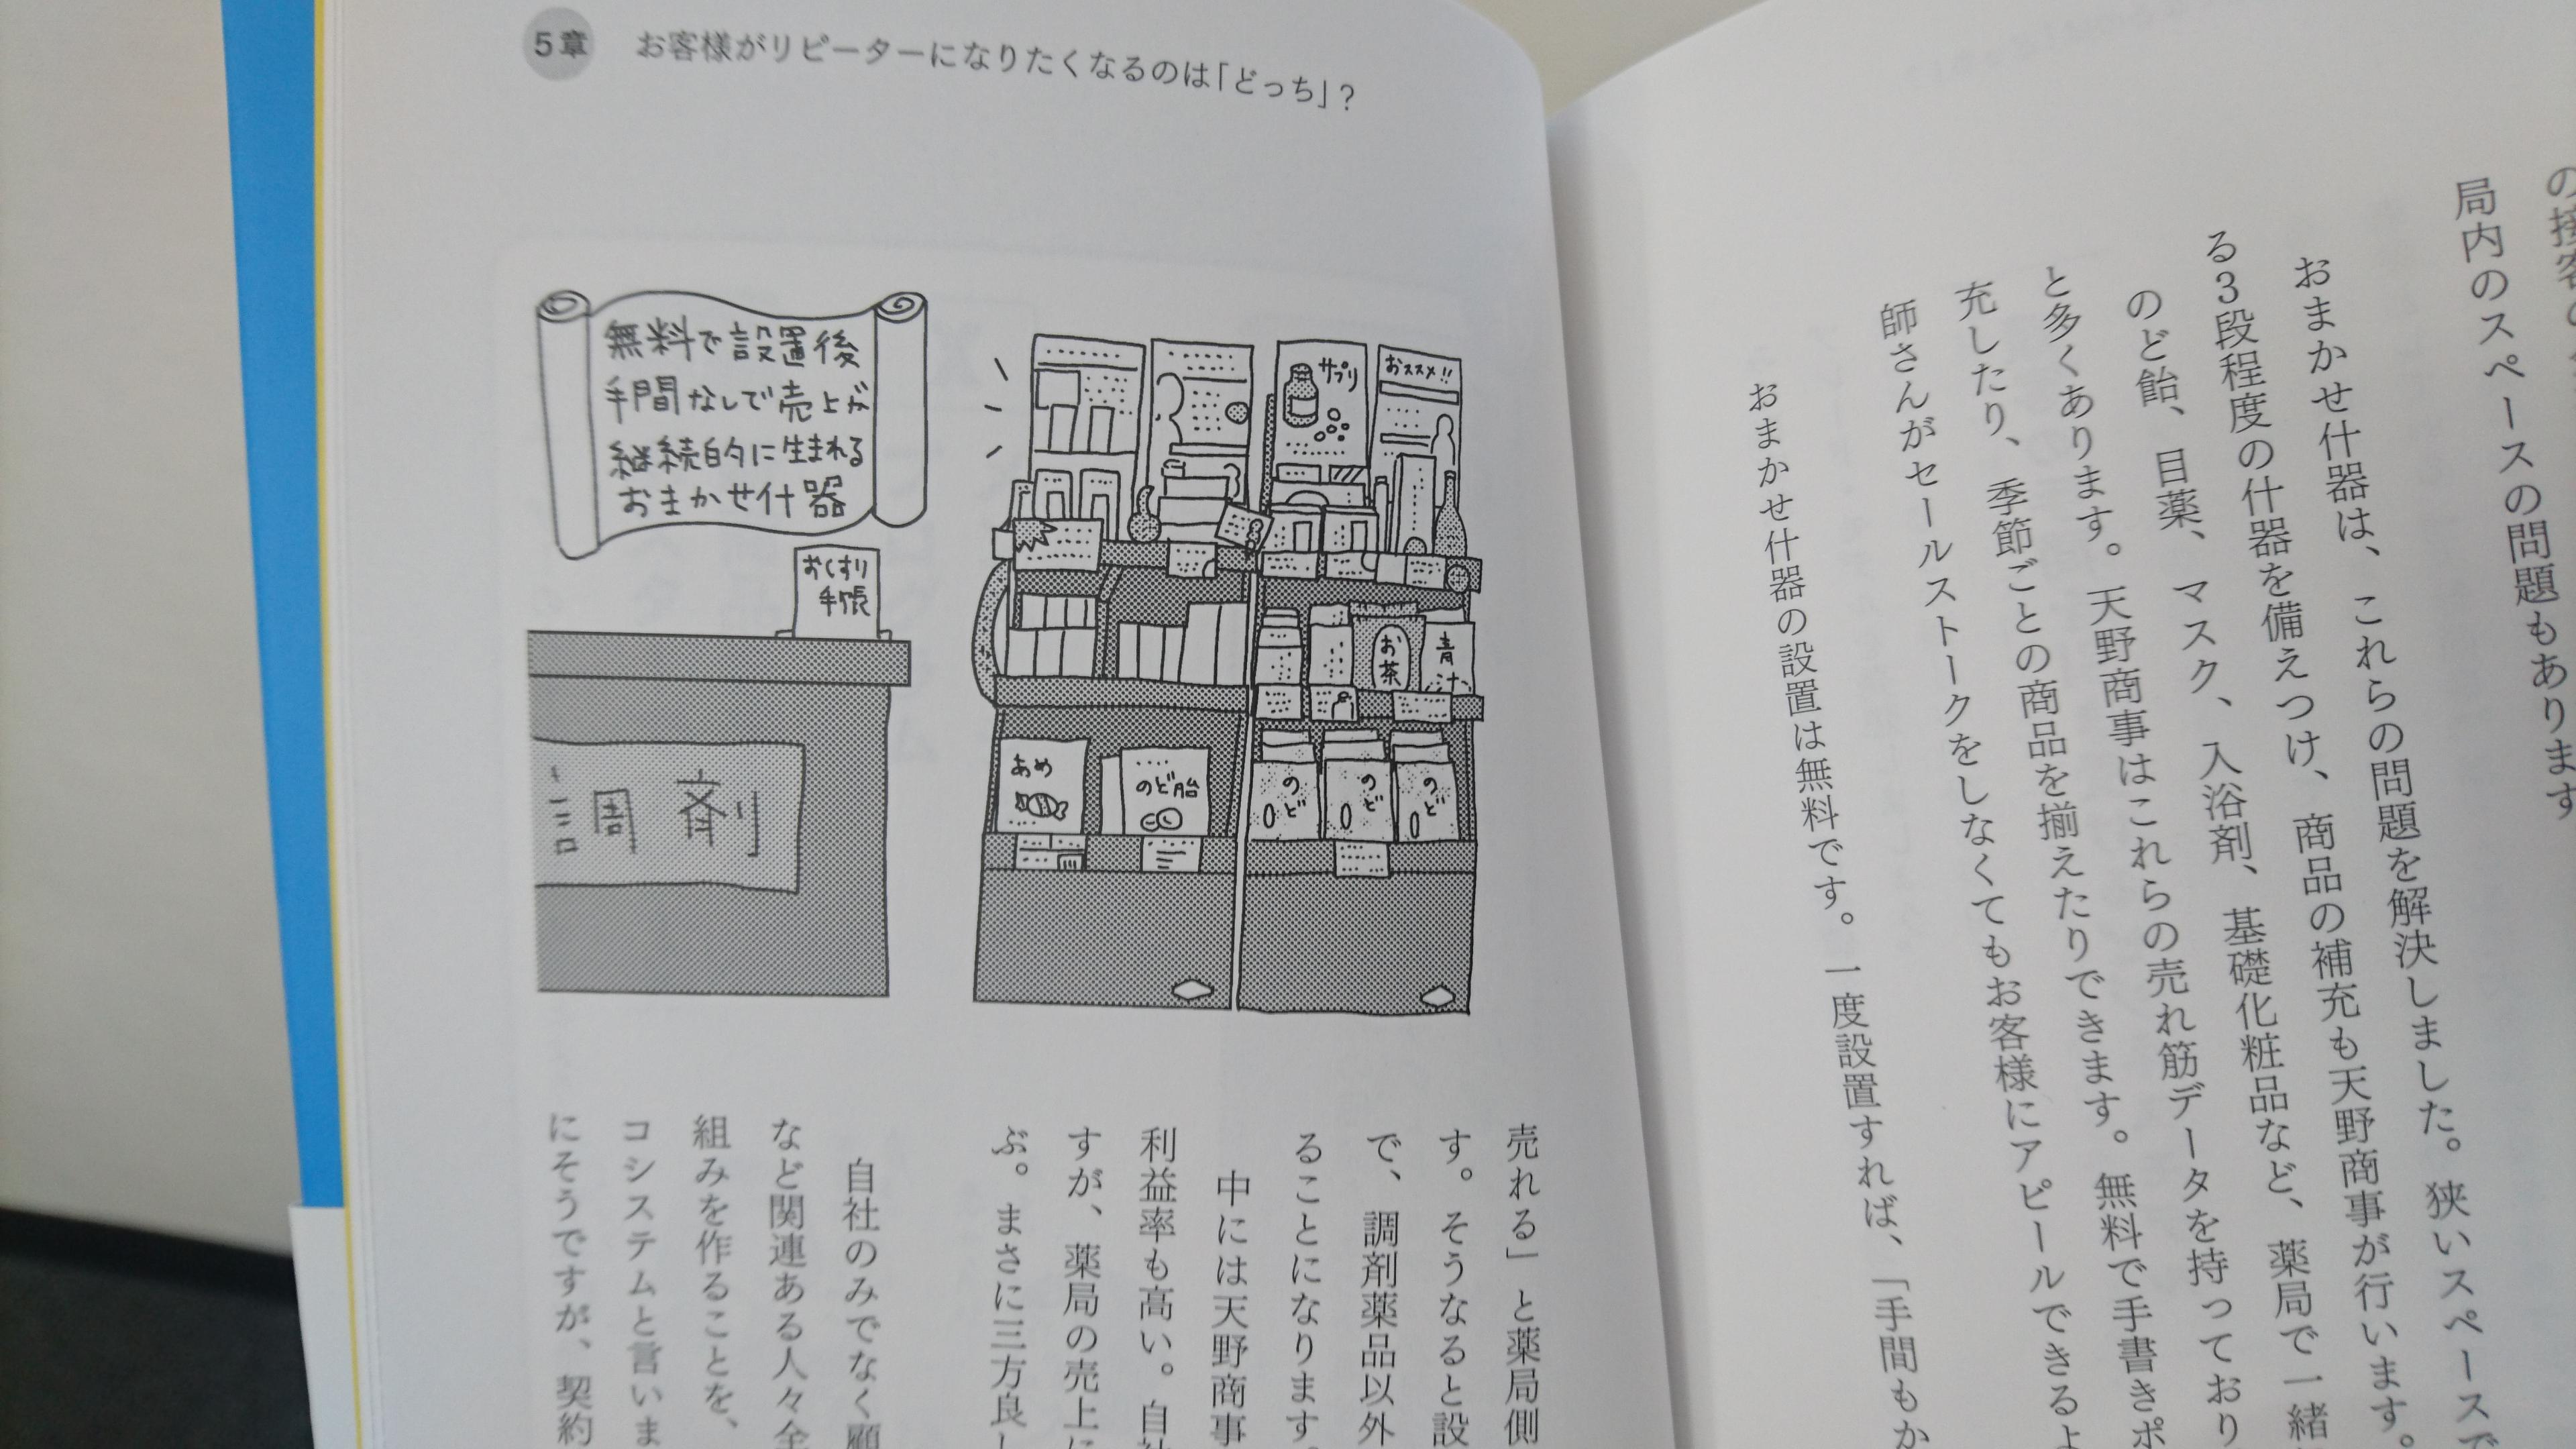 の接客
局内のスペースの問題もあります
おまかせ什器は、これらの問題を解決しました。狭いスペースで
る3段程度の什器を備えつけ、商品の補充も天野商事が行います。
のど飴、目薬、マスク、入浴剤、基礎化粧品など、薬局で一緒
と多くあります。天野商事はこれらの売れ筋データを持っており
充したり、季節ごとの商品を揃えたりできます。無料で手書きポ
師さんがセールストークをしなくてもお客様にアピールできるよ
おまかせ什器の設置は無料です。一度設置すれば、「手間もか
5章 お客様がリピーターになりたくなるのは「どっち」?
無料で設置後
手間なしで売上が
継続的に生まれる
おまかせ什器
おくすり
手帳
調剤
サプリ
おススメ!!
お茶
青汁
あめ
のど飴
のど
のど
のど
売れる」と薬局側
す。そうなると設
で、調剤薬品以外
ることになります。
中には天野商事
利益率も高い。自社
すが、薬局の売上に
ぶ。まさに三方良し
自社のみでなく顧
など関連ある人々全
組みを作ることを、
コシステムと言いま
にそうですが、契約